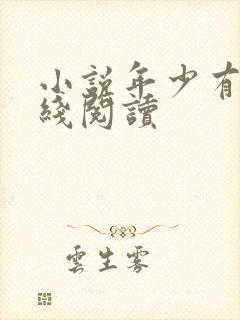 小說年少有
綫閱讀
雲生雾